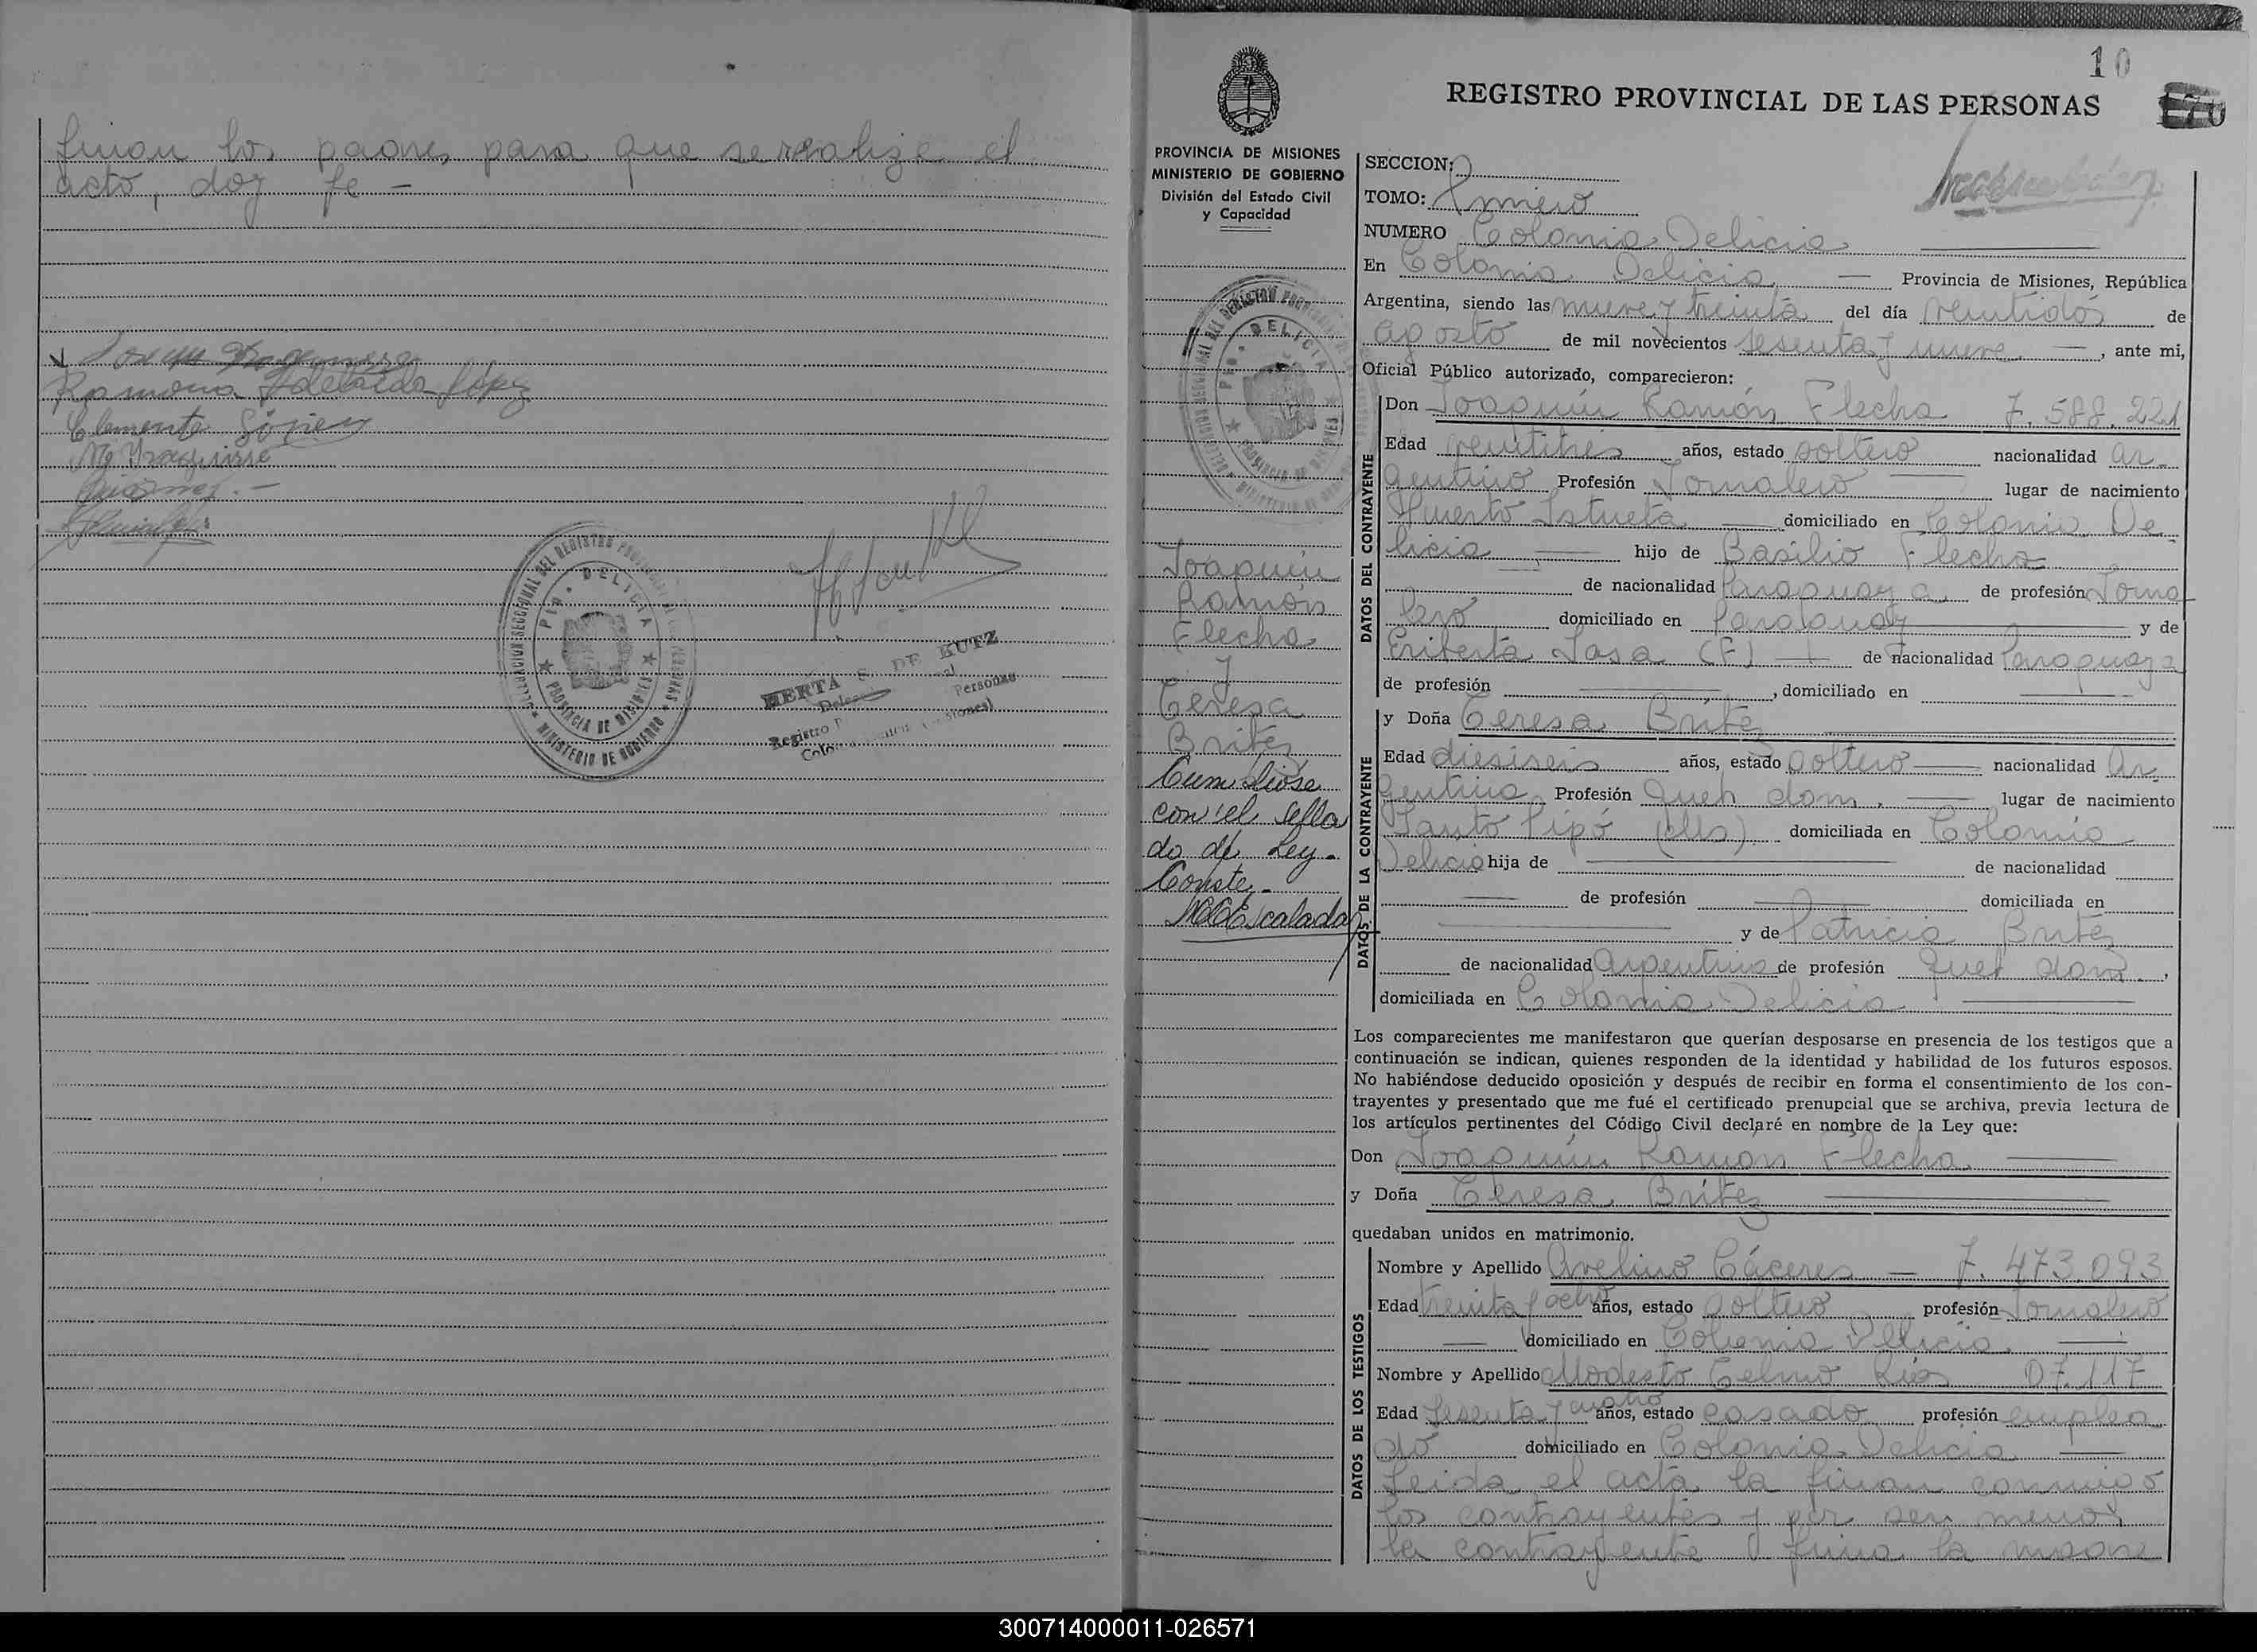 firman los padres para que se realize el
acto, doy fe -
Ramona Adelaida López
Clemente
DELICIA
PROVINCIA DE MISIONES
MINISTERIO DE GOBIERNO
HERTA S. DE KUTZ
Registro
10
REGISTRO PROVINCIAL DE LAS PERSONAS
PROVINCIA DE MISIONES
MINISTERIO DE GOBIERNO
División del Estado Civil
y Capacidad
Joaquín
Ramón
Flecha
y
Teresa
Brítez
Cumpliose
con el sella
do de Ley.-
Conste,-
SECCION:
TOMO: Primero
NUMERO Colonia Delicia
En Colonia Delicia — Provincia de Misiones, República
Argentina, siendo las nueve y treinta del día veintidós de
agosto de mil novecientos sesenta y nueve —, ante mi,
Oficial Público autorizado, comparecieron:
DATOS DEL CONTRAYENTE
Don Joaquín Ramón Flecha 7.588.221
Edad veintitrés años, estado soltero nacionalidad ar-
gentino Profesión Jornalero — lugar de nacimiento
Puerto Istueta — domiciliado en Colonia De-
licia — hijo de Basilio Flecha
de nacionalidad Paraguaya de profesión Jorna
lero domiciliado en Paraguay y de
Eriberta Sosa (F) — de nacionalidad Paraguaya
de profesión —, domiciliado en —
DATOS DE LA CONTRAYENTE
y Doña Teresa Brítez
Edad dieciseis años, estado soltero — nacionalidad Ar-
gentina Profesión Queh dom. — lugar de nacimiento
Santo Pipó (Mis) domiciliada en Colonia
Delicia hija de — de nacionalidad
— de profesión — domiciliada en
— y de Patricia Brítez
de nacionalidad Argentina de profesión Queh dom.,
domiciliada en Colonia Delicia —
Los comparecientes me manifestaron que querían desposarse en presencia de los testigos que a
continuación se indican, quienes responden de la identidad y habilidad de los futuros esposos.
No habiéndose deducido oposición y después de recibir en forma el consentimiento de los con-
trayentes y presentado que me fué el certificado prenupcial que se archiva, previa lectura de
los artículos pertinentes del Código Civil declaré en nombre de la Ley que:
Don Joaquín Ramón Flecha —
y Doña Teresa Brítez —
quedaban unidos en matrimonio.
DATOS DE LOS TESTIGOS
Nombre y Apellido Avelino Cáceres — 7.473.093
Edad treinta y ocho años, estado soltero profesión Jornalero
— domiciliado en Colonia Delicia —
Nombre y Apellido Modesto Telmo Ríos 07.117
Edad sesenta y cuatro años, estado casado profesión emplea
do domiciliado en Colonia Delicia —
Leida el acta la firman conmigo
los contrayentes y por ser menor
la contrayente firma la madre
300714000011-026571